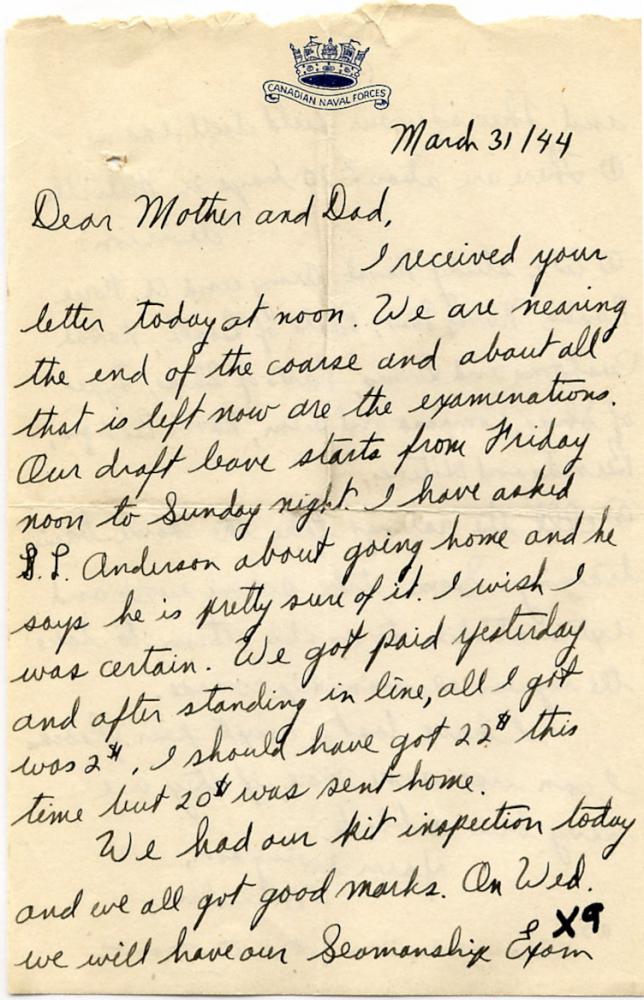 CANADIAN NAVAL FORCES
March 31/44
Dear Mother and Dad,
I received your
letter today at noon. We are nearing
the end of the coarse and about all
that is left now are the examinations.
Our draft leave starts from Friday
noon to Sunday night. I have asked
S.L. Anderson about going home and he
says he is pretty sure of it. I wish I
was certain. We got paid yesterday
and after standing in line, all I got
was 2$, I should have got 22$ this
time but 20$ was sent home.
We had our kit inspection today
and we all got good marks. On Wed.
X9
we will have our Seamanship Exam